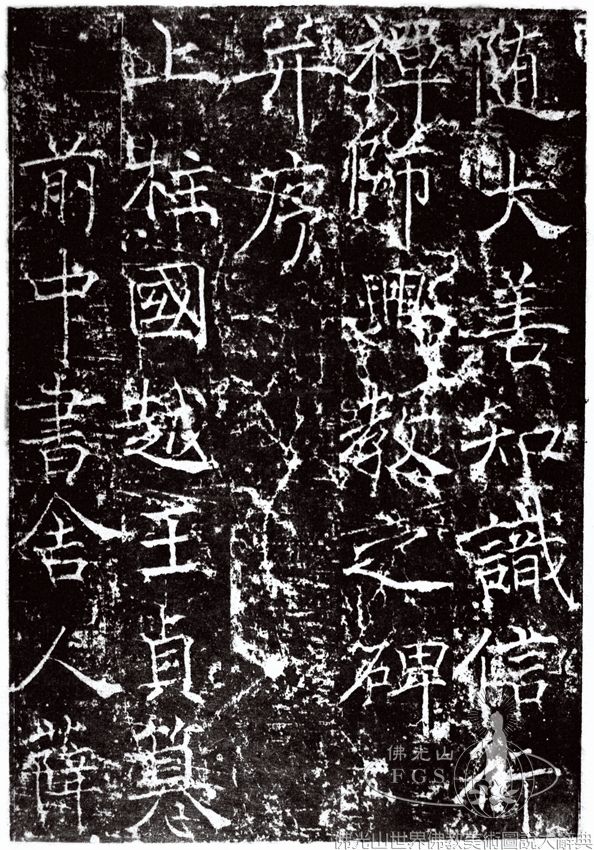 随大善知識信行
禪師興教之碑
并序
上柱國越王貞篡
前中書舍人薛
佛光山
F.G.S.
佛光山世界佛教美術圖說大辭典